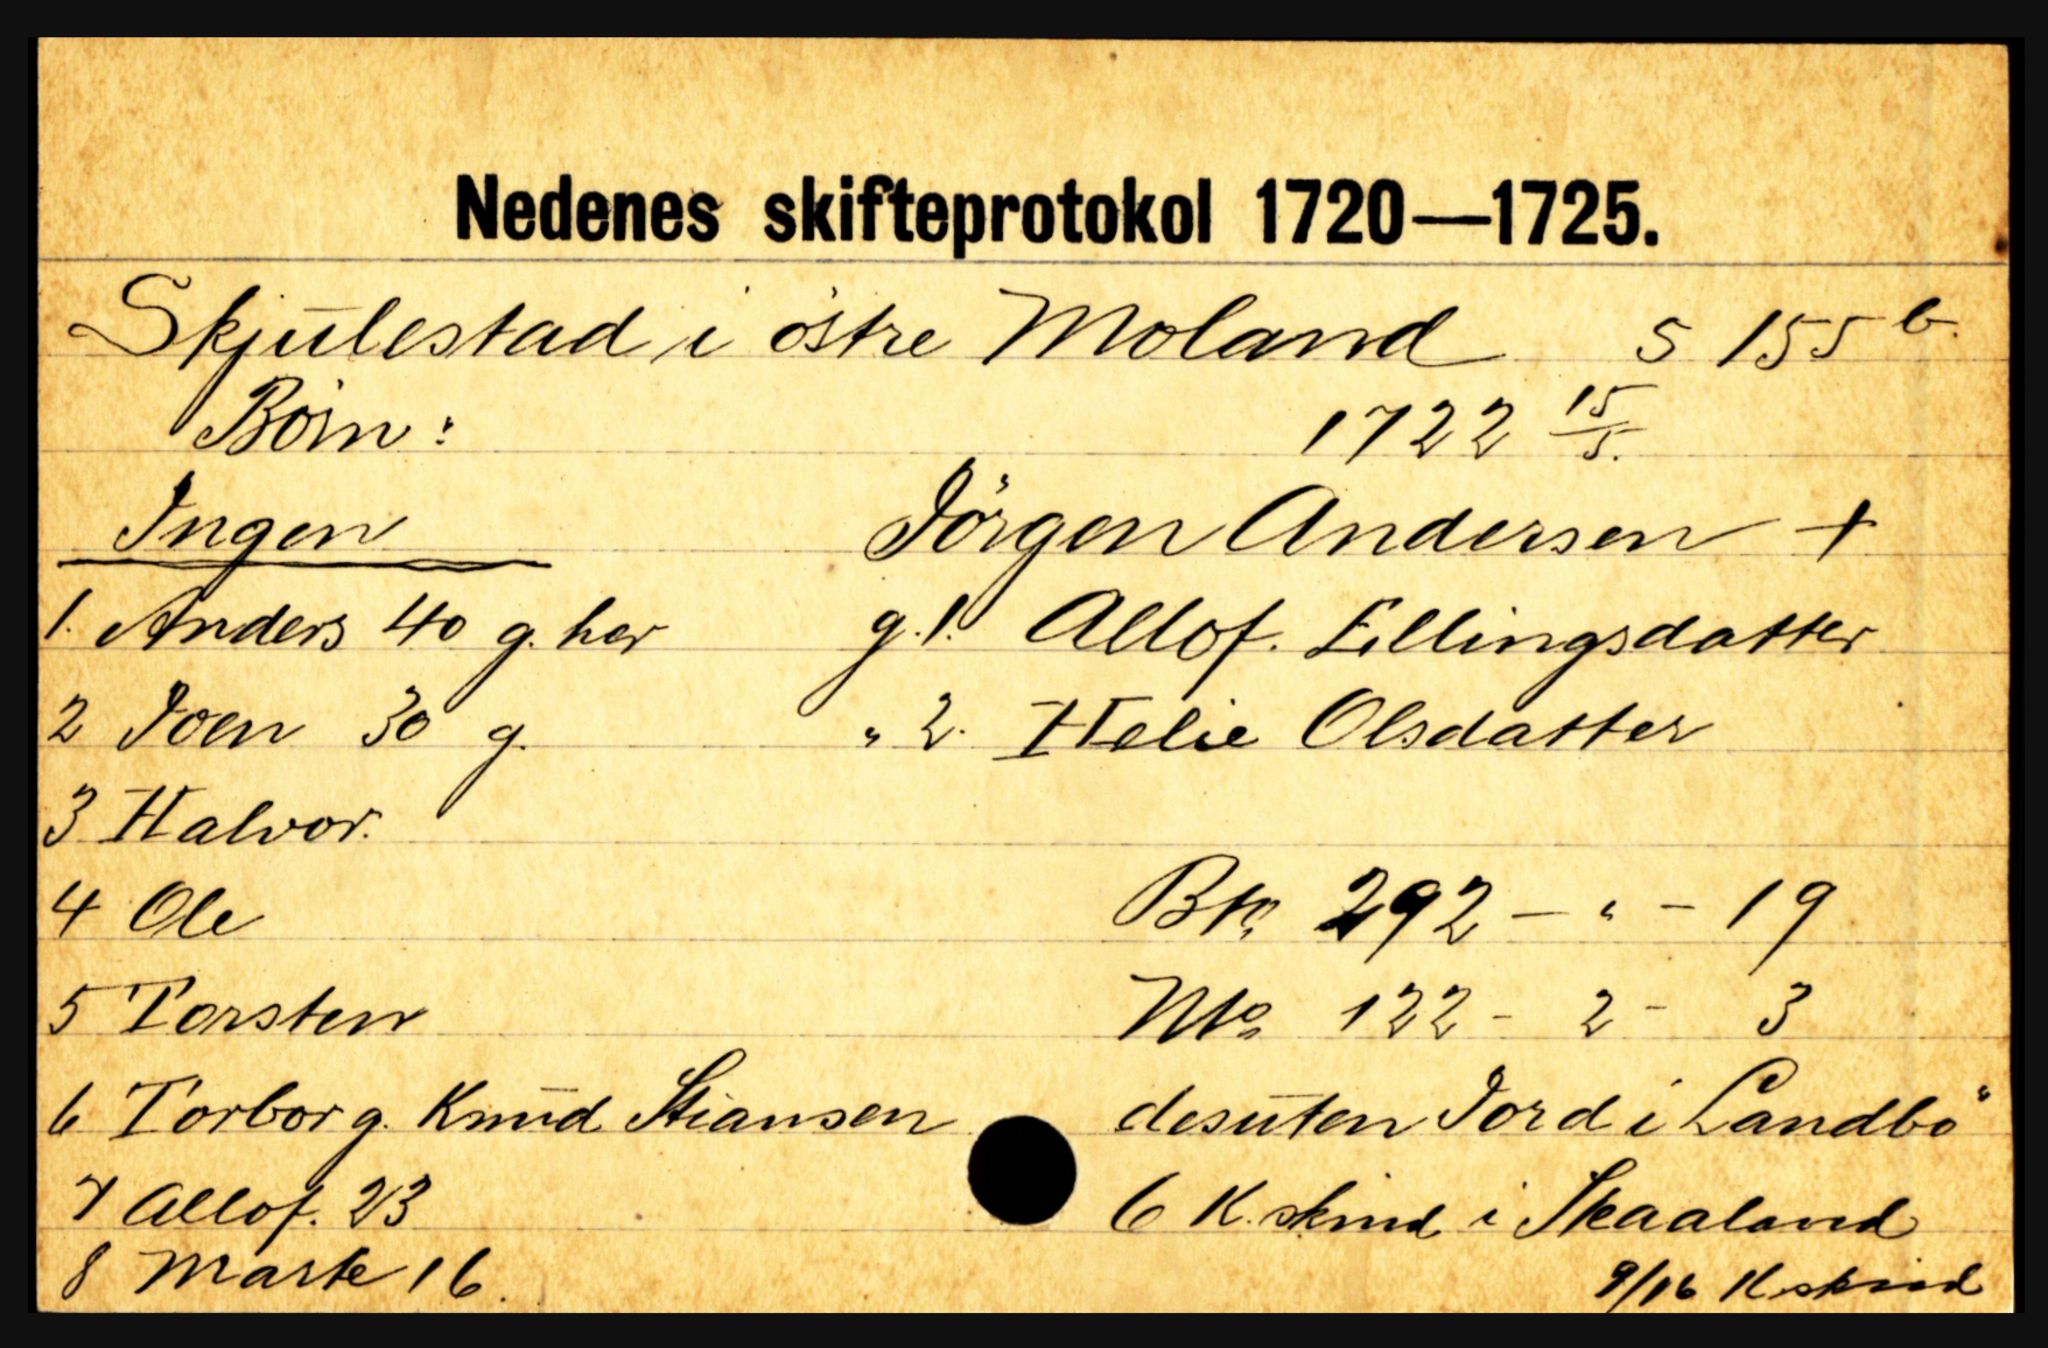 Nedenes skifteprotokol 1720—1725.
Skjulestad i östre Moland S 155 b.
Börn: 1722 15/5.
Ingen Jörgen Andersen +
1. Anders 40 g. her g. 1. Allof. Ellingsdatter
2 Joen 30 g. " 2. Helie Olsdatter
3 Halvor.
4 Ole Bto 292 — " — 19
5 Torsten Nto 122 - 2 - 3
6 Torbor g. Knud Stiansen desuten Jord i Landbö
7 Allof. 23 6 K. skind i Skaaland
8 Marte 16. 9/16 K. skind